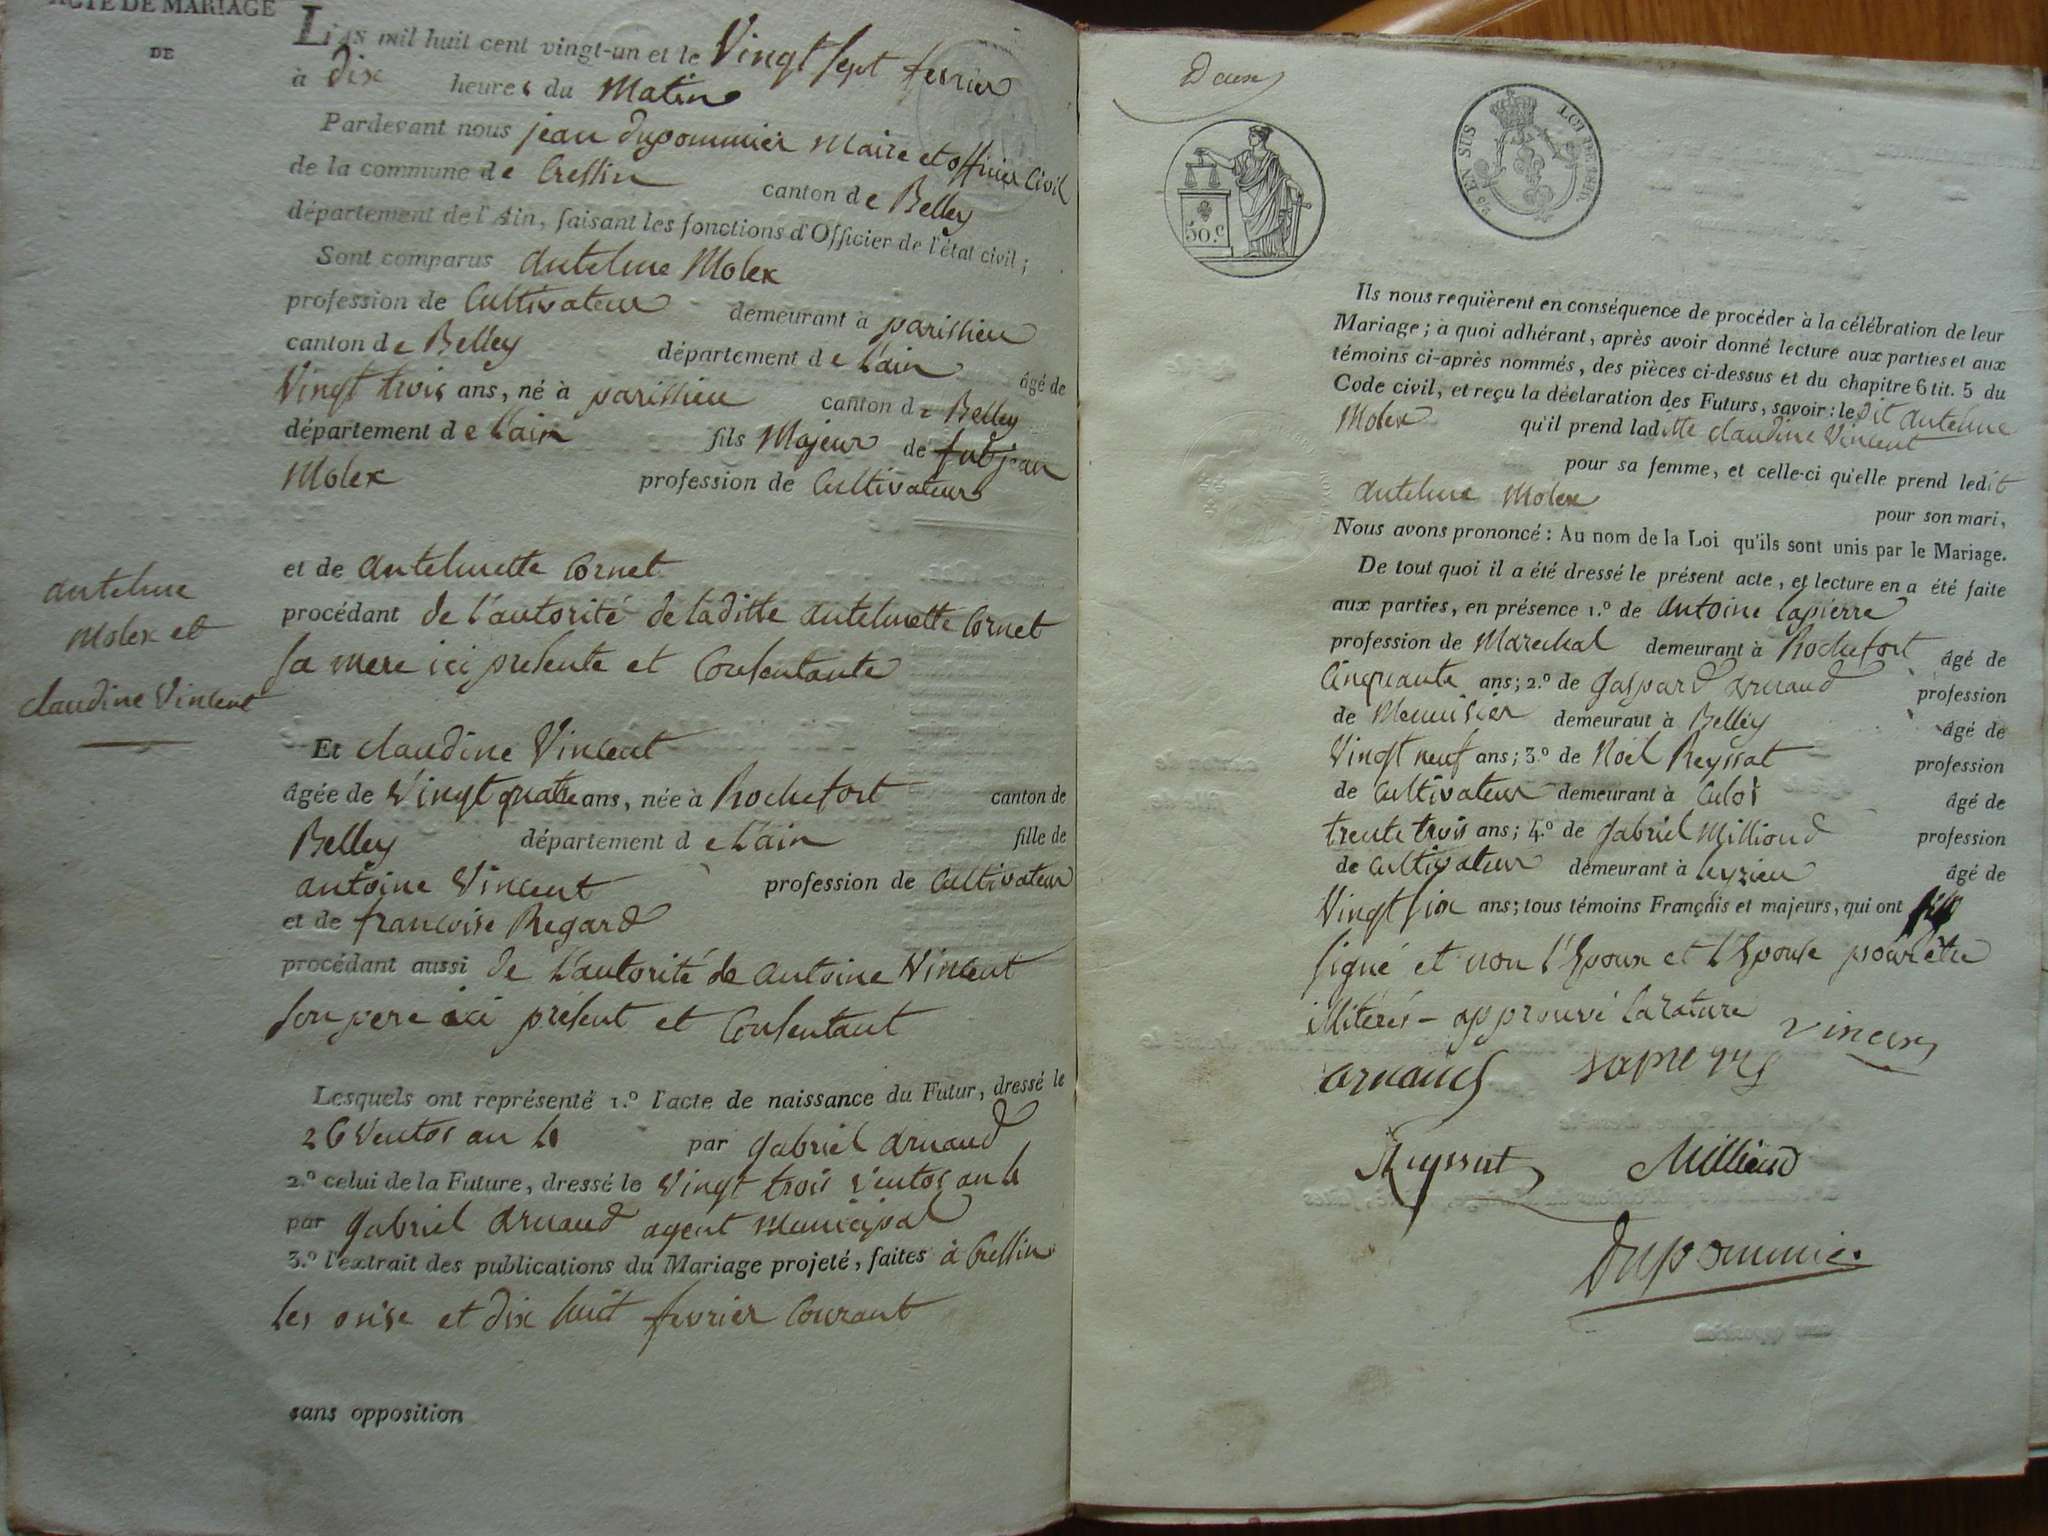 ACTE DE MARIAGE
DE
antelme
Molex et
claudine Vincent
L'an mil huit cent vingt-un et le Vingt sept fevrier
à dix heures du Matin
Pardevant nous jean dupommier Maire et officier Civil
de la commune de Cressin canton de Belley
département de l'Ain, faisant les fonctions d'Officier de l'état civil;
Sont comparus antelme Molex
profession de Cultivateur demeurant à parissieu
canton de Belley département de l'ain âgé de
Vingt trois ans, né à parissieu canton de Belley
département de l'ain fils Majeur de jean
Molex profession de Cultivateur
et de antelmette Cornet
procédant de l'autorité de laditte antelmette Cornet
sa mere ici presente et Consentante
Et claudine Vincent
âgée de Vingt quatre ans, née à Rochefort canton de
Belley département de l'ain fille de
antoine Vincent profession de Cultivateur
et de francoise Regard
procédant aussi de l'autorité de antoine Vincent
son pere ici présent et Consentant
Lesquels ont représenté 1.º l'acte de naissance du Futur, dressé le
26 Ventos an 4 par gabriel arnaud
2.º celui de la Future, dressé le Vingt trois Ventos an 4
par gabriel arnaud agent Municipal
3.º l'extrait des publications du Mariage projeté, faites à Cressin
les onse et dix huit fevrier Courant
sans opposition
Deux
50.c
25 EN SUS
LOI DE 1816.
Ils nous requièrent en conséquence de procéder à la célébration de leur
Mariage; à quoi adhérant, après avoir donné lecture aux parties et aux
témoins ci-après nommés, des pièces ci-dessus et du chapitre 6 tit. 5 du
Code civil, et reçu la déclaration des Futurs, savoir: le dit antelme
Molex qu'il prend laditte claudine Vincent
pour sa femme, et celle-ci qu'elle prend ledit
antelme Molex pour son mari,
Nous avons prononcé: Au nom de la Loi qu'ils sont unis par le Mariage.
De tout quoi il a été dressé le présent acte, et lecture en a été faite
aux parties, en présence 1.º de antoine lapierre
profession de Marechal demeurant à Rochefort âgé de
Cinquante ans; 2.º de gaspard arnaud profession
de Menuisier demeurant à Belley âgé de
Vingt neuf ans; 3.º de Noel Reyssat profession
de Cultivateur demeurant à Culos âgé de
trente trois ans; 4.º de gabriel Milliond profession
de Cultivateur demeurant à leyzieu âgé de
Vingt six ans; tous témoins Français et majeurs, qui ont
signé et non l'Epoux et l'Epouse pour être
illiterés - approuvé la rature
Vincent
arnaud lapierre
Reyssat Milliond
Dupommier